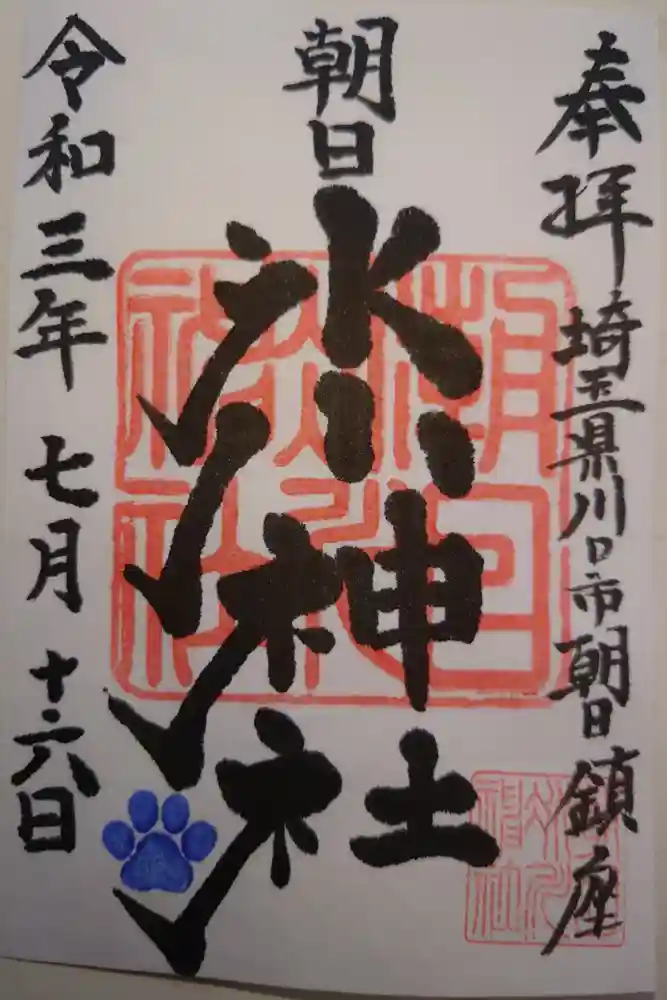 奉拝 埼玉県川口市朝日鎮座
朝日
氷川神社
令和三年七月十六日
朝日氷川神社